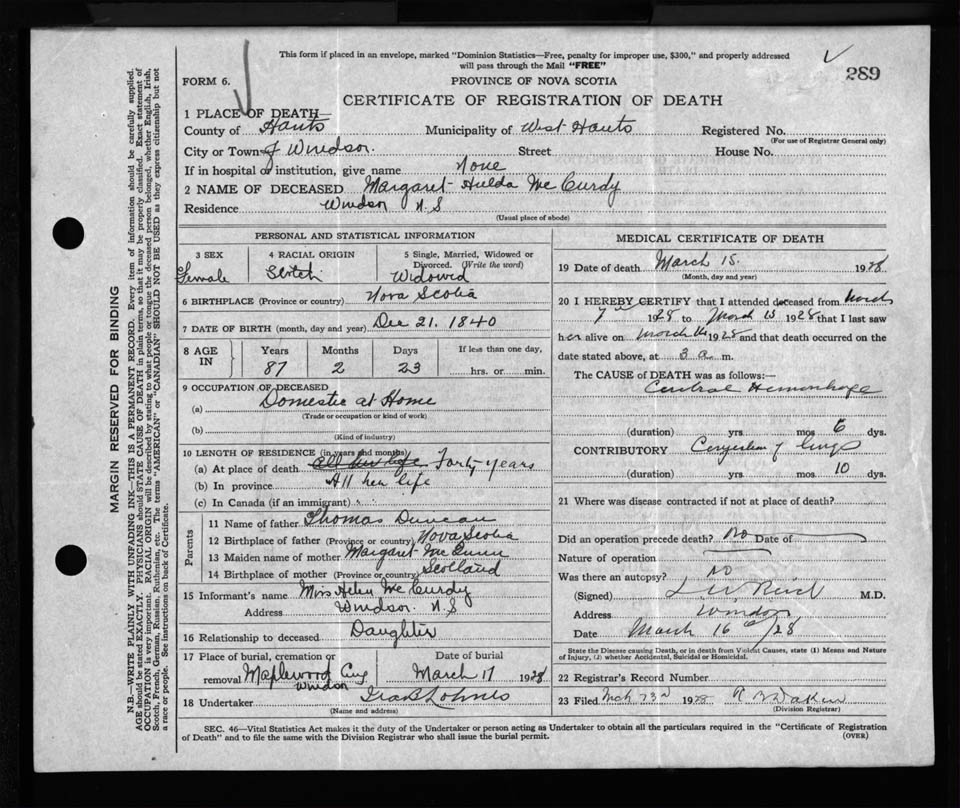 This form if placed in an envelope, marked "Dominion Statistics—Free, penalty for improper use, $300," and properly addressed
will pass through the Mail "FREE"
289
FORM 6.
PROVINCE OF NOVA SCOTIA
CERTIFICATE OF REGISTRATION OF DEATH
1 PLACE OF DEATH—
County of Hants Municipality of West Hants Registered No.
(For use of Registrar General only)
City or Town of Windsor. Street House No.
If in hospital or institution, give name None
2 NAME OF DECEASED Margaret Hulda McCurdy
Residence Windsor N.S
(Usual place of abode)
PERSONAL AND STATISTICAL INFORMATION
3 SEX 4 RACIAL ORIGIN 5 Single, Married, Widowed or
Divorced. (Write the word)
Female Scotch Widowed
6 BIRTHPLACE (Province or country) Nova Scotia
7 DATE OF BIRTH (month, day and year) Dec 21. 1840
8 AGE IN Years Months Days If less than one day,
87 2 23 hrs. or min.
9 OCCUPATION OF DECEASED
(a) Domestic at Home
(Trade or occupation or kind of work)
(b)
(Kind of industry)
10 LENGTH OF RESIDENCE (in years and months)
(a) At place of death All her life Forty years
(b) In province All her life
(c) In Canada (if an immigrant)
Parents
11 Name of father Thomas Duncan
12 Birthplace of father (Province or country) Nova Scotia
13 Maiden name of mother Margaret
14 Birthplace of mother (Province or country) Scotland
15 Informant's name Miss Helen McCurdy
Address Windsor N.S
16 Relationship to deceased Daughter
17 Place of burial, cremation or Date of burial
removal Maplewood Cmy March 17 1928
Windsor
18 Undertaker
(Name and address)
MEDICAL CERTIFICATE OF DEATH
19 Date of death March 15. 1928
(Month, day and year)
20 I HEREBY CERTIFY that I attended deceased from March
7th 1928 to March 15 1928 that I last saw
her alive on March 1928 and that death occurred on the
date stated above, at 3 a. m.
The CAUSE of DEATH was as follows:—
Cerebral Hemorrhage
(duration) yrs. mos 6 dys.
CONTRIBUTORY Congestion of lungs
(duration) yrs. mos 10 dys.
21 Where was disease contracted if not at place of death?
Did an operation precede death? No Date of
Nature of operation
Was there an autopsy? No
(Signed) M.D.
Address Windsor
Date March 16th /28
State the Disease causing Death, or in death from Violent Causes, state (1) Means and Nature
of Injury, (2) whether Accidental, Suicidal or Homicidal.
22 Registrar's Record Number
23 Filed Mch 23rd 1928
(Division Registrar)
SEC. 46—Vital Statistics Act makes it the duty of the Undertaker or person acting as Undertaker to obtain all the particulars required in the "Certificate of Registration
of Death" and to file the same with the Division Registrar who shall issue the burial permit. (OVER)
MARGIN RESERVED FOR BINDING
N.B.—WRITE PLAINLY WITH UNFADING INK—THIS IS A PERMANENT RECORD. Every item of information should be carefully supplied.
AGE should be stated EXACTLY. PHYSICIANS should STATE CAUSE OF DEATH in plain terms, so that it may be properly classified. Exact statement of
OCCUPATION is very important. RACIAL ORIGIN will be described by stating to what people or tongue the deceased person belonged, whether English, Irish,
Scotch, French, German, Russian, Ruthenian, etc. The terms "AMERICAN" or "CANADIAN" SHOULD NOT BE USED as they express citizenship but not
a race or people. See instructions on back of Certificate.